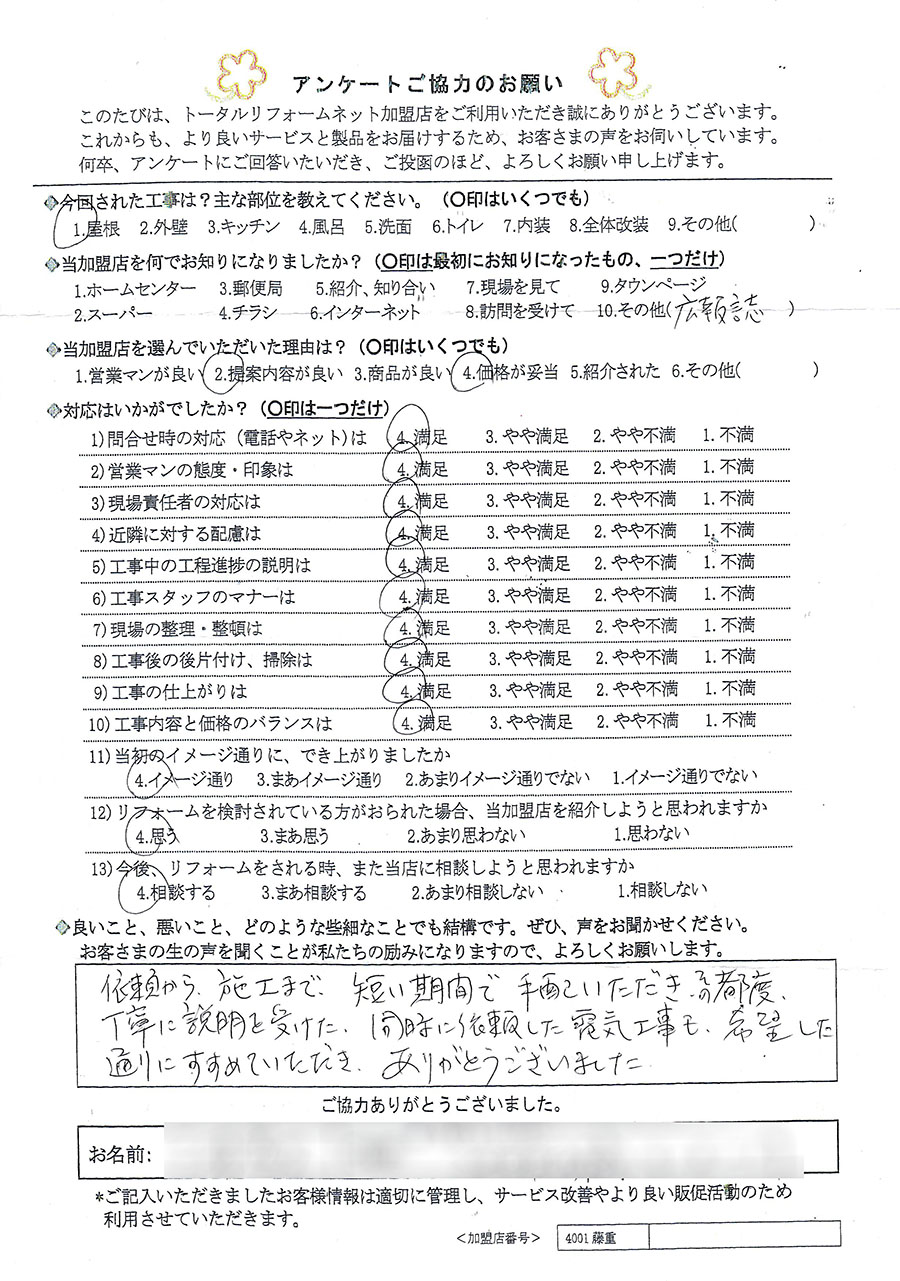 アンケートご協力のお願い
このたびは、トータルリフォームネット加盟店をご利用いただき誠にありがとうございます。
これからも、より良いサービスと製品をお届けするため、お客さまの声をお伺いしています。
何卒、アンケートにご回答いたいだき、ご投函のほど、よろしくお願い申し上げます。
◈今回された工事は？主な部位を教えてください。（〇印はいくつでも）
1.屋根 2.外壁 3.キッチン 4.風呂 5.洗面 6.トイレ 7.内装 8.全体改装 9.その他( )
◈当加盟店を何でお知りになりましたか？（〇印は最初にお知りになったもの、一つだけ）
1.ホームセンター 3.郵便局 5.紹介、知り合い 7.現場を見て 9.タウンページ
2.スーパー 4.チラシ 6.インターネット 8.訪問を受けて 10.その他(広報誌 )
◈当加盟店を選んでいただいた理由は？（〇印はいくつでも）
1.営業マンが良い 2.提案内容が良い 3.商品が良い 4.価格が妥当 5.紹介された 6.その他( )
◈対応はいかがでしたか？（〇印は一つだけ）
1)問合せ時の対応（電話やネット)は 4.満足 3.やや満足 2.やや不満 1.不満
2)営業マンの態度・印象は 4.満足 3.やや満足 2.やや不満 1.不満
3)現場責任者の対応は 4.満足 3.やや満足 2.やや不満 1.不満
4)近隣に対する配慮は 4.満足 3.やや満足 2.やや不満 1.不満
5)工事中の工程進捗の説明は 4.満足 3.やや満足 2.やや不満 1.不満
6)工事スタッフのマナーは 4.満足 3.やや満足 2.やや不満 1.不満
7)現場の整理・整頓は 4.満足 3.やや満足 2.やや不満 1.不満
8)工事後の後片付け、掃除は 4.満足 3.やや満足 2.やや不満 1.不満
9)工事の仕上がりは 4.満足 3.やや満足 2.やや不満 1.不満
10)工事内容と価格のバランスは 4.満足 3.やや満足 2.やや不満 1.不満
11)当初のイメージ通りに、でき上がりましたか
4.イメージ通り 3.まあイメージ通り 2.あまりイメージ通りでない 1.イメージ通りでない
12)リフォームを検討されている方がおられた場合、当加盟店を紹介しようと思われますか
4.思う 3.まあ思う 2.あまり思わない 1.思わない
13)今後、リフォームをされる時、また当店に相談しようと思われますか
4.相談する 3.まあ相談する 2.あまり相談しない 1.相談しない
◈良いこと、悪いこと、どのような些細なことでも結構です。ぜひ、声をお聞かせください。
お客さまの生の声を聞くことが私たちの励みになりますので、よろしくお願いします。
依頼から、施工まで、短い期間で手配していただき、その都度、
丁寧に説明を受けた、同時に依頼した電気工事も、希望した
通りにすすめていただき、ありがとうございました
ご協力ありがとうございました。
お名前:
*ご記入いただきましたお客様情報は適切に管理し、サービス改善やより良い販促活動のため
利用させていただきます。
＜加盟店番号＞ 4001 藤重